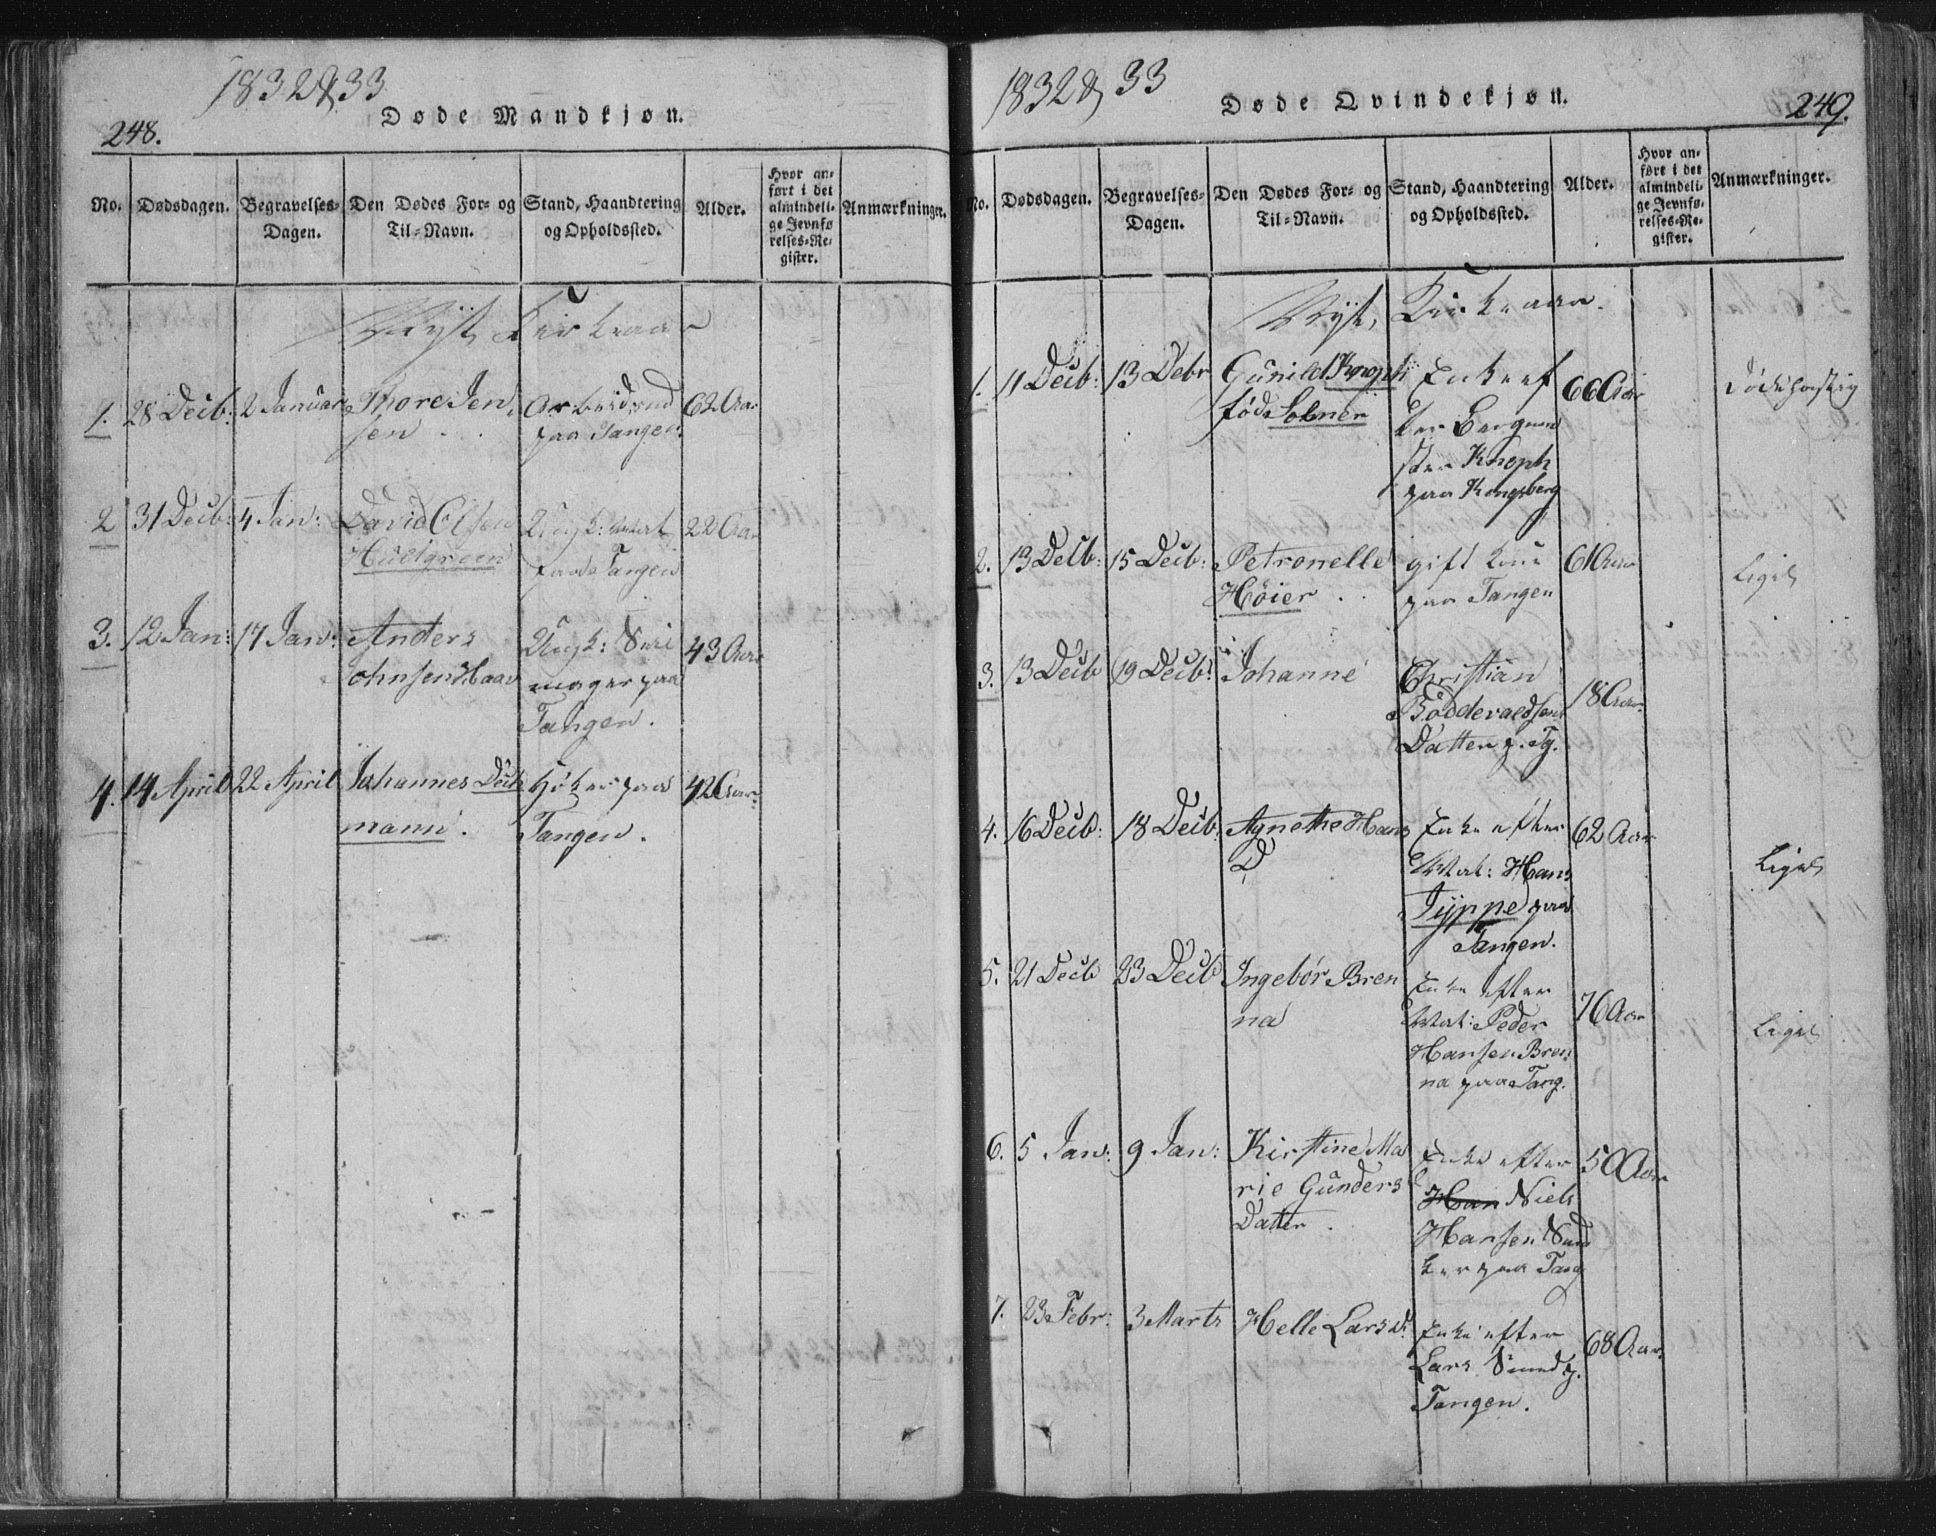 1832 & 33
248.
Døde Mandkjøn.
No.
Dødsdagen.
Begravelses-
Dagen.
Den Dødes For- og
Til-Navn.
Stand, Haandtering
og Opholdssted.
Alder.
Hvor an-
ført i det
almindeli-
ge Jevnfø
relses-Re-
gister.
Anmærkninger.
Nyt Kirkeaar
1. 28 Decb: 2 Januar Thore Jen
sen
Arbeidsmd
paa Tangen
62 Aar
2 31 Decb: 4 Jan: David Olsen
Hultgreen
Ungk: Mat
paa Tangen
22 Aar
3. 12 Jan: 17 Jan: Anders
Johnsen Haav
Ungk:
mager paa
Tangen.
43 Aar
4. 14 April 22 April Johannes Deich
mann.
Høker paa
Tangen.
42 Aar.
1832 & 33
Døde Qvindekjøn.
249.
No.
Dødsdagen.
Begravelses-
Dagen.
Den Dødes For- og
Til-Navn.
Stand, Haandtering
og Opholdssted.
Alder.
Hvor an-
føre i det
almindeli-
ge Jevnfø-
relses-Re-
gister.
Anmærkninger.
Nyt Kirkeaar.
1. 11 Decb: 13 Debr Gunild Knoph
fød Solmer
Enke ef
ter
Knoph
paa Kongsberg
66 Aar
2. 13 Decb: 15 Decb: Petronelle
Høier
gift Kone
paa Tangen
61 Aar
Ligel
3. 13 Decb 19 Decb: Johanne
Christian
Boddevaldsens
Datter p. Tg.
18 Aar.
4. 16 Decb: 18 Decb: Agnethe Hans
D
Enke efter
Mat: Hans
Jyppe paa
Tangen.
62 Aar
Ligel
5. 21 Decb 23 Decb Ingebor Bren
na
Enke efter
Mat: Peder
Hansen Bren
na paa Tang.
76 Aar
Ligel
6. 5 Jan: 9 Jan: Kirstine Ma
rie Gunders
Datter.
Enke efter
Han Niels
Hansen
ker paa Tang
50 Aar
7. 23 Febr: 3 Marts Helle Lars D.
Enke efter
Lars Smed p.
Tangen.
68 Aar.